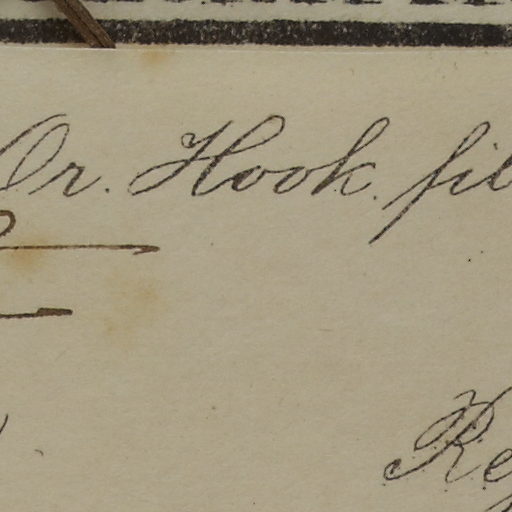 Dr. Hook. fil
Re